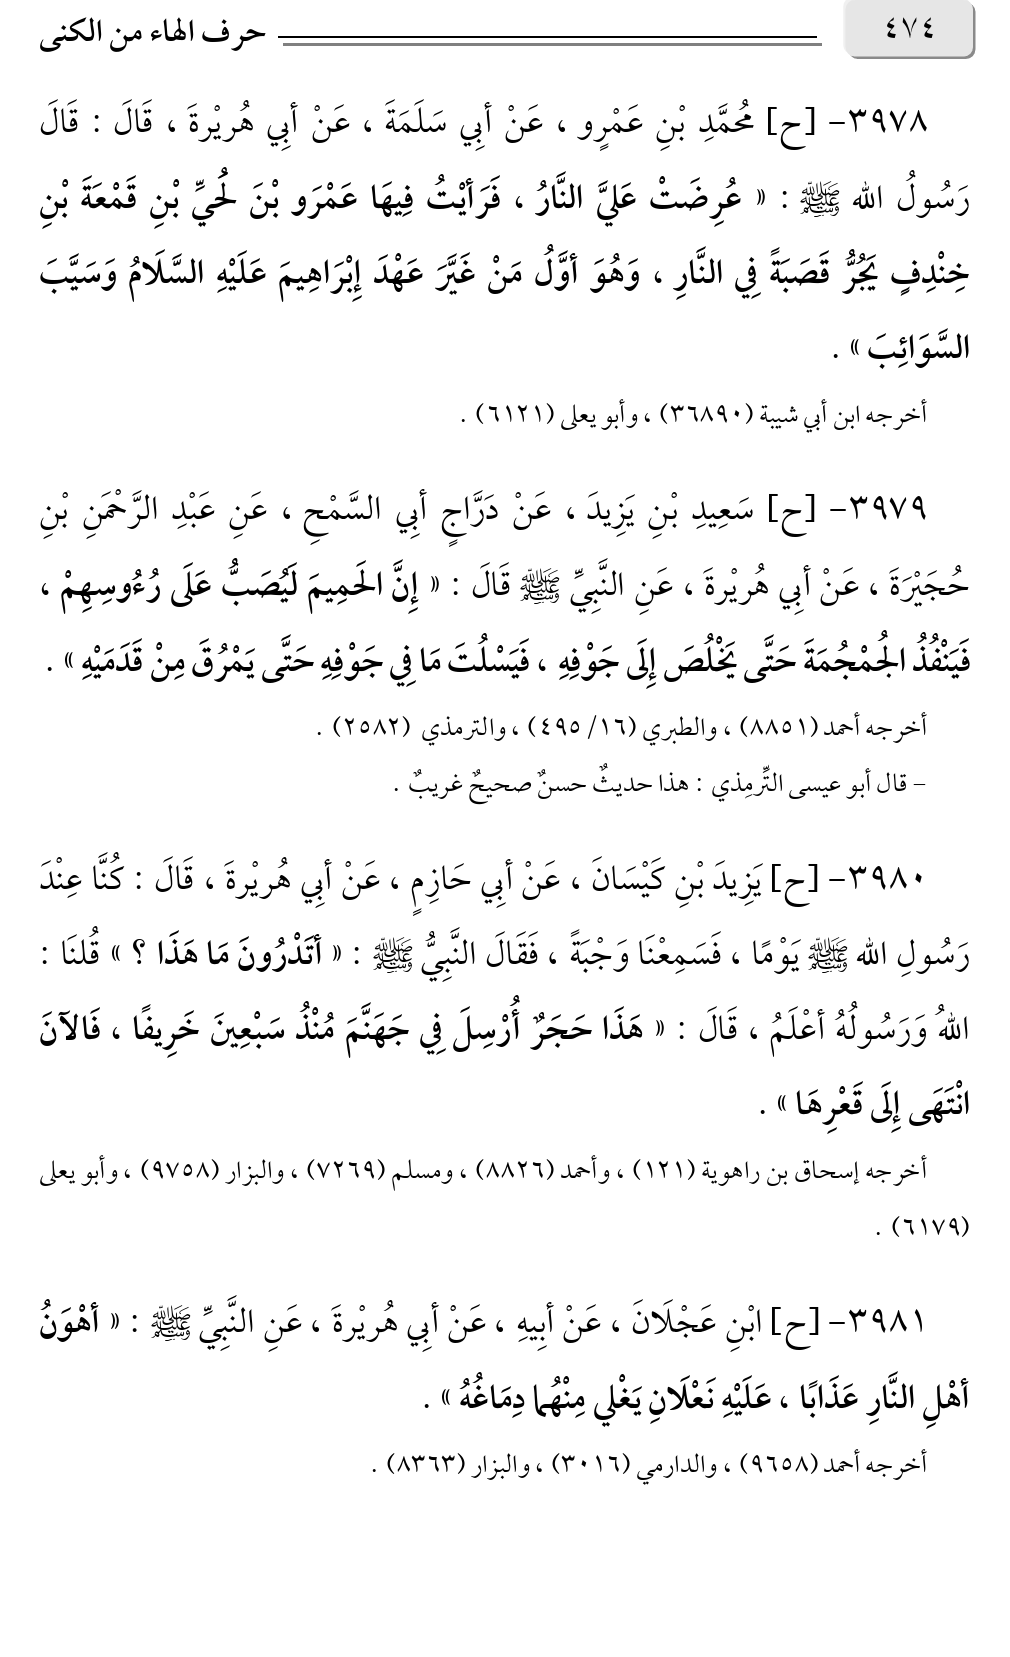 ٤٧٤
حرف الهاء من الكنى
٣٩٧٨- [ح] مُحَمَّدِ بْنِ عَمْرٍو ، عَنْ أبِي سَلَمَةَ ، عَنْ أبِي هُريْرةَ ، قَالَ : قَالَ
رَسُولُ الله ﷺ : « عُرِضَتْ عَليَّ النَّارُ ، فَرَأيْتُ فِيهَا عَمْرَو بْنَ لُحيِّ بْنِ قَمْعَةَ بْنِ
خِنْدِفٍ يَجُرُّ قَصَبَةً فِي النَّارِ ، وَهُوَ أوَّلُ مَنْ غَيَّرَ عَهْدَ إِبْرَاهِيمَ عَلَيْهِ السَّلَامُ وَسَيَّبَ
السَّوَائِبَ » .
أخرجه ابن أبي شيبة (٣٦٨٩٠) ، وأبو يعلى (٦١٢١) .
٣٩٧٩- [ح] سَعِيدِ بْنِ يَزِيدَ ، عَنْ دَرَّاجٍ أبِي السَّمْحِ ، عَنِ عَبْدِ الرَّحْمَنِ بْنِ
حُجَيْرَةَ ، عَنْ أبِي هُريْرةَ ، عَنِ النَّبِيِّ ﷺ قَالَ : « إِنَّ الحَمِيمَ لَيُصَبُّ عَلَى رُءُوسِهِمْ ،
فَيَنْفُذُ الجُمْجُمَةَ حَتَّى يَخْلُصَ إِلَى جَوْفِهِ ، فَيَسْلُتَ مَا فِي جَوْفِهِ حَتَّى يَمْرُقَ مِنْ قَدَمَيْهِ » .
أخرجه أحمد (٨٨٥١) ، والطبري (١٦/ ٤٩٥) ، والترمذي (٢٥٨٢) .
- قال أبو عيسى التِّرمِذي : هذا حديثٌ حسنٌ صحيحٌ غريبٌ .
٣٩٨٠- [ح] يَزِيدَ بْنِ كَيْسَانَ ، عَنْ أبِي حَازِمٍ ، عَنْ أبِي هُريْرةَ ، قَالَ : كُنَّا عِنْدَ
رَسُولِ الله ﷺ يَوْمًا ، فَسَمِعْنَا وَجْبَةً ، فَقَالَ النَّبِيُّ ﷺ : « أتَدْرُونَ مَا هَذَا ؟ » قُلنَا :
اللهُ وَرَسُولُهُ أعْلَمُ ، قَالَ : « هَذَا حَجَرٌ أُرْسِلَ فِي جَهَنَّمَ مُنْذُ سَبْعِينَ خَرِيفًا ، فَالآنَ
انْتَهَى إِلَى قَعْرِهَا » .
أخرجه إسحاق بن راهوية (١٢١) ، وأحمد (٨٨٢٦) ، ومسلم (٧٢٦٩) ، والبزار (٩٧٥٨) ، وأبو يعلى
(٦١٧٩) .
٣٩٨١- [ح] ابْنِ عَجْلَانَ ، عَنْ أبِيهِ ، عَنْ أبِي هُريْرةَ ، عَنِ النَّبِيِّ ﷺ : « أهْوَنُ
أهْلِ النَّارِ عَذَابًا ، عَلَيْهِ نَعْلَانِ يَغْلي مِنْهُما دِمَاغُهُ » .
أخرجه أحمد (٩٦٥٨) ، والدارمي (٣٠١٦) ، والبزار (٨٣٦٣) .